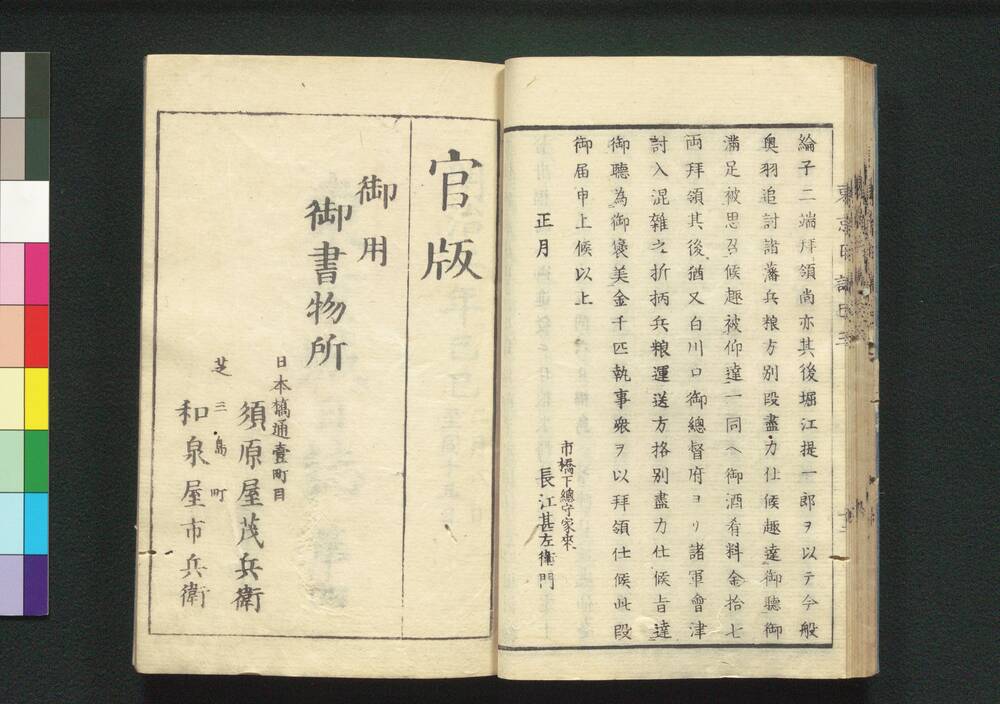 綸子二端拜領尚亦其後堀江提一郎ヲ以テ今般
奥羽追討諸藩兵粮方別段盡力仕候趣達御聽御
滿足被思召候趣被仰達一同ヘ御酒肴料金拾七
両拜領其後猶又白川口御總督府ヨリ諸軍會津
討入混雜之折柄兵粮運送方格別盡力仕候旨達
御聽為御褒美金千匹執事衆ヲ以拜領仕候此段
御届申上候以上
正月
市橋下總守家来
長江甚左衛門
官版
御用
御書物所
日本橋通壹町目
須原屋茂兵衛
芝三島町
和泉屋市兵衛